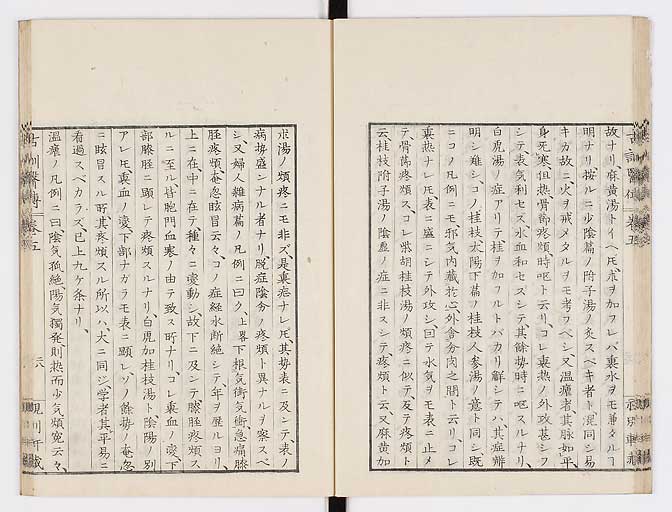 故ナリ麻黄湯トイヘ𪜈朮ヲ加フレバ裏水ヲモ兼タルヿ
明ナリ按ルニ少陰篇ノ附子湯ノ灸スベキ者ト混同シ易
キカ故ニ火ヲ戒メタルヲモ考フベシ又温瘧者其脉如平
身死寒但熱骨節疼煩時呕ト云リ、コレ裏熱ノ外攻甚シフ
シテ表気利セス水血和セスシテ其餘勢時ニ呕スルナリ、
白虎湯ノ症アリテ桂ヲ加フルトバカリ觧シテハ、其症辨
明シ難シ、コノ桂枝太陽下篇ノ桂枝人参湯ノ意ト同シ、既
ニコノ凡例ニモ邪気内藏於心外舎分肉之間ト云リ、コレ
裏熱ナレ𪜈、表ニ盛ニシテ外攻シ、回テ水気ヲモ表ニ止メ
テ、骨節疼煩ス、コレ柴胡桂枝湯ノ煩疼ニ似テ、反テ疼煩ト
云桂枝附子湯ノ陰虚ノ症ニ非スシテ疼煩ト云又麻黄加
朮湯ノ煩疼ニモ非ズ、是裏症ナレ𪜈、其勢表ニ及シテ表ノ
病勢盛ンナル者ナリ、脱症陰分ノ疼煩ト異ナルヲ察スベ
シ、又婦人雜病篇ノ凡例ニ曰ク、上畧下根気街気衝急痛膝
脛疼煩奄忽眩冒云々、コノ症経水断絶シテ年ヲ歴ルヨリ、
上ニ在、中ニ在テ、種々ニ変動シ、故下ニ及シテ、膝脛疼煩ス
ルニ至ル皆胞門血寒ノ由テ致ス所ナリ、コレ裏血ノ変、下
部膝脛ニ顕レテ疼煩スルナリ、白虎加桂枝湯ト陰陽ノ別
アレ𪜈裏血ノ変、下部ナガラモ表ニ顕レ、ソノ餘勢ノ奄忽
ニ眩冒スル所、其疼煩スル所以ハ、大ニ同ジ、学者其平易ニ
看過スベカラズ、已上九ケ条ナリ、
温瘧ノ凡例ニ曰陰気孤絶陽気獨発則熱而少気煩寃云々、